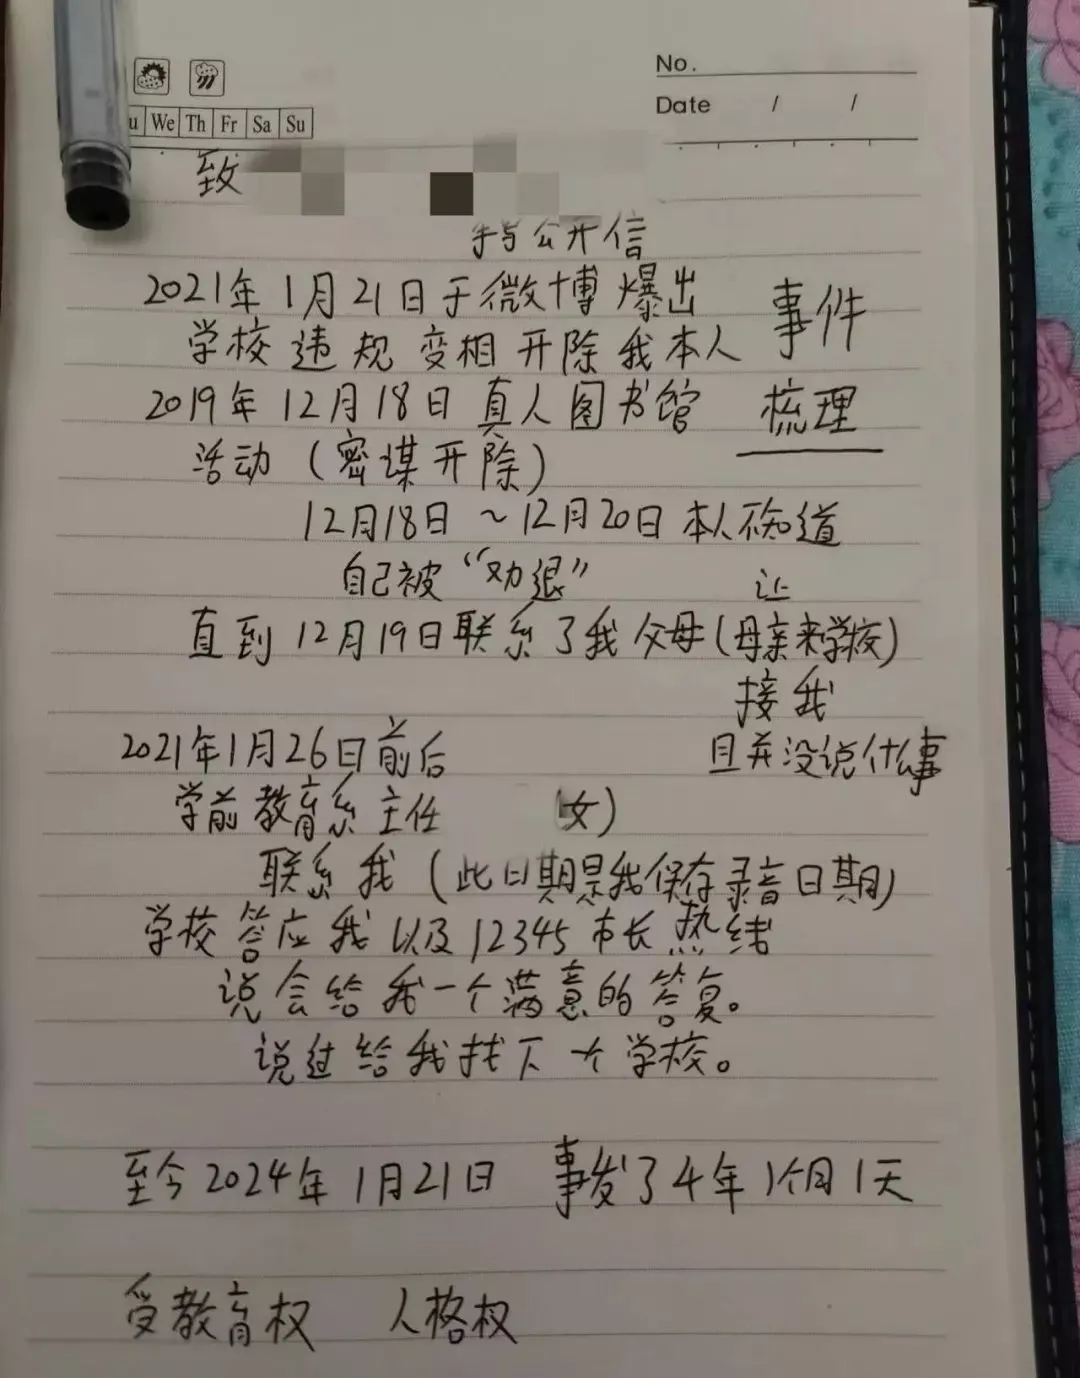 No.
Date / /
u We Th Fr Sa Su
致
手写公开信
2021年1月21日于微博爆出
学校违规变相开除我本人
事件
梳理
2019年12月18日真人图书馆
活动（密谋开除）
12月18日～12月20日本人不知道
自己被“劝退”
直到12月19日联系了我父母（母亲来学校）
让
接我
且并没说什么事
2021年1月26日前后
学前教育系主任 （女）
联系我（此日期是我保存录音日期）
学校答应我以及12345市长热线
说会给我一个满意的答复。
说过给我找下个学校。
至今2024年1月21日 事发了4年1个月1天
受教育权 人格权